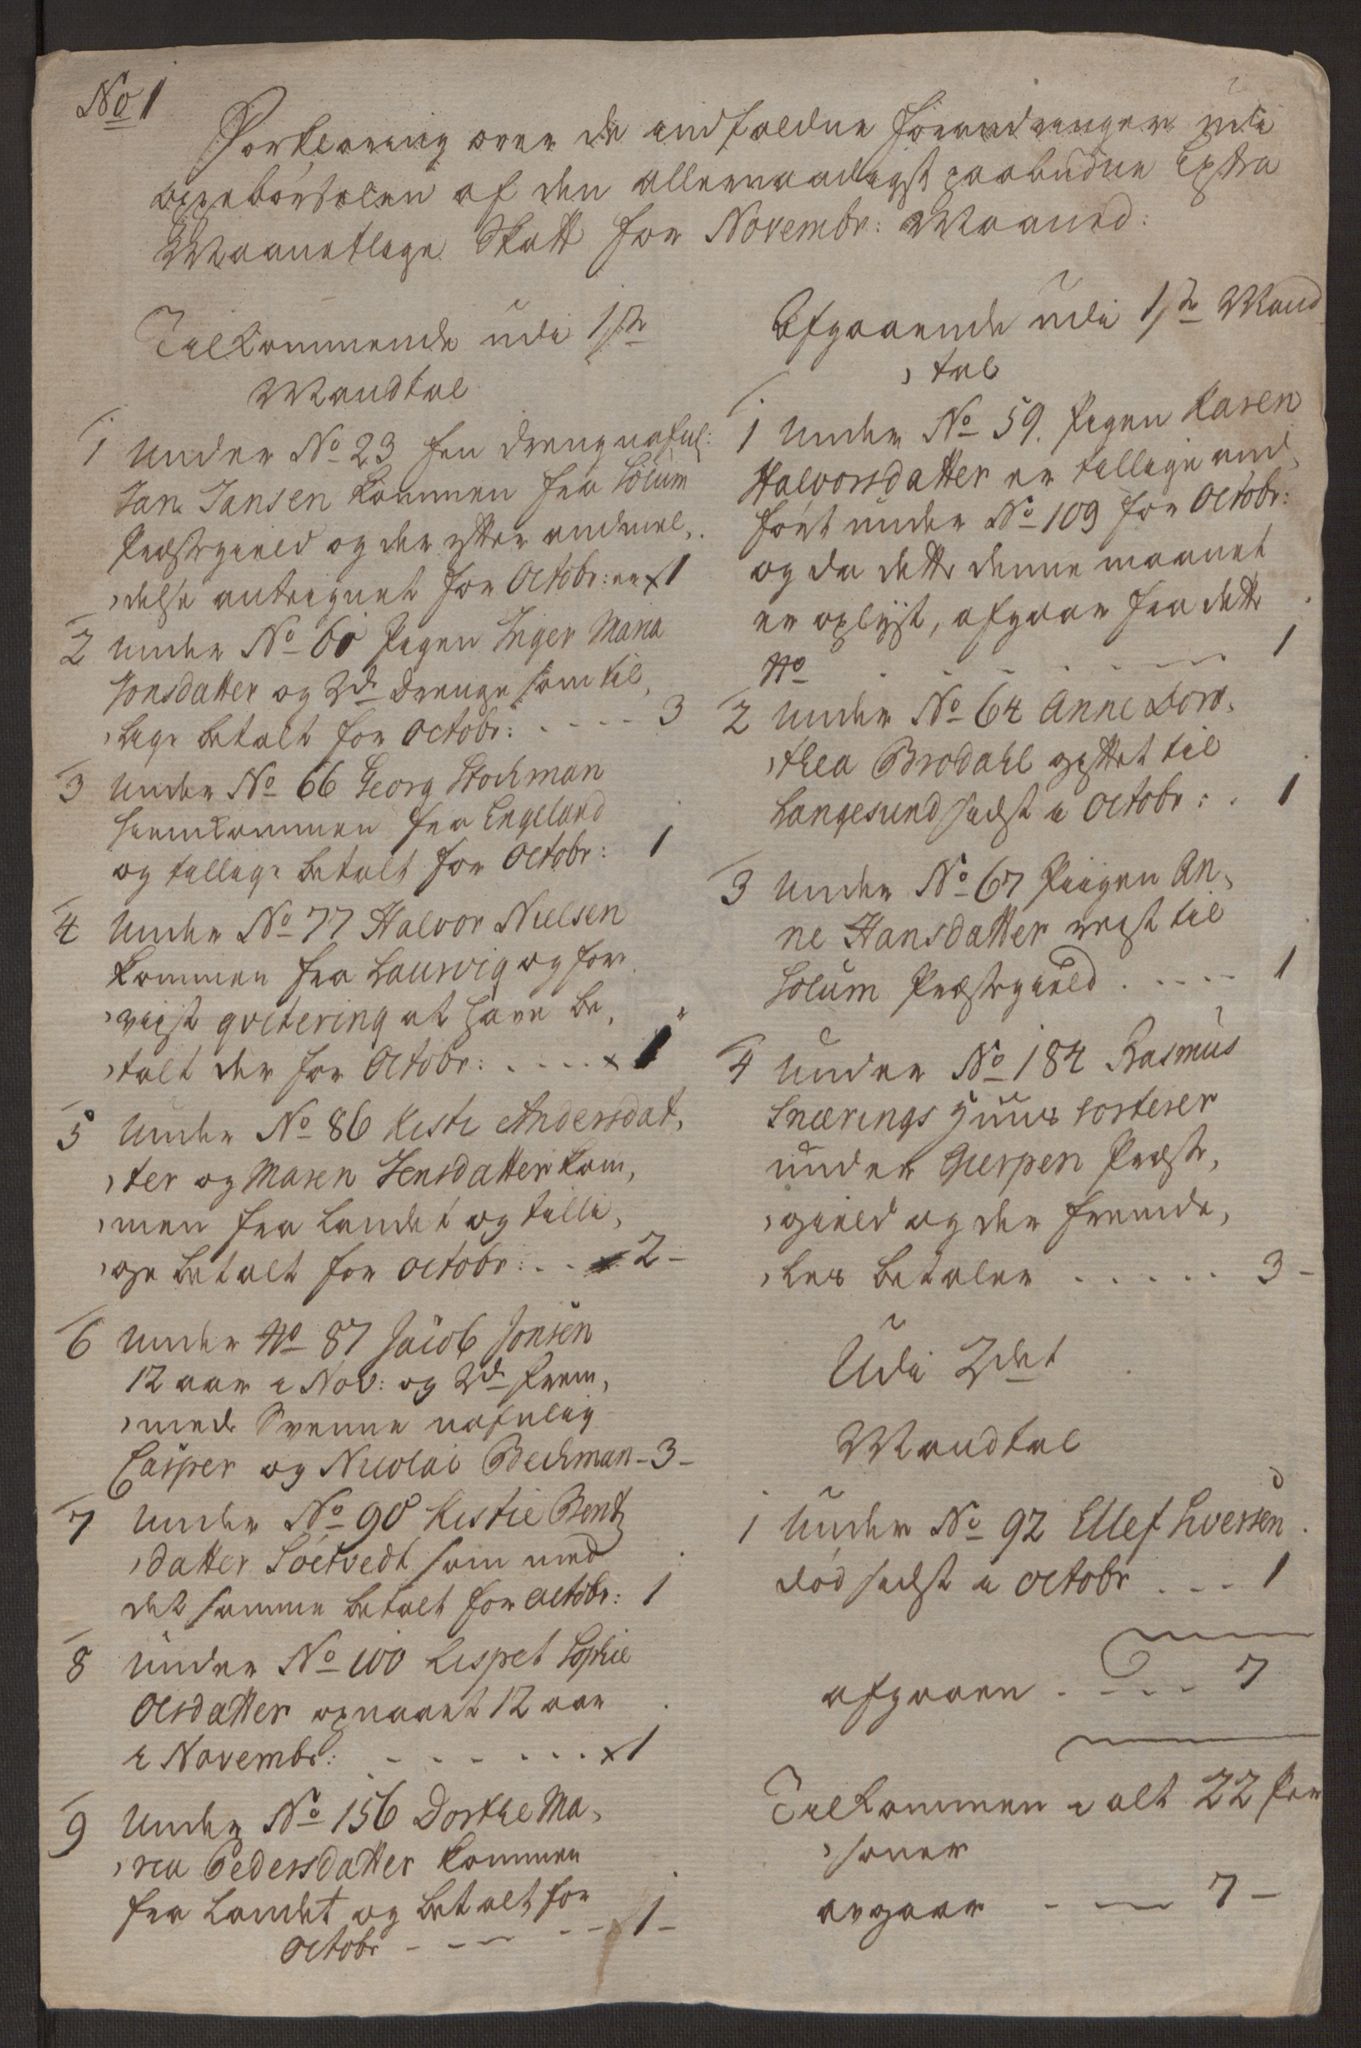 No 1
Forklaring over de indfaldne forandringer udi
oppebørselen af den allernaadigst paabudne Extra
Maanetlige Skatt for Novembr: Maaned:
Tilkommende udi 1ste
Mandtal
1 Under No 23 en dreng nafnl:
Jan Jansen kommen fra Solum
Præstegield og der efter anmel,
delse antegnet for Octobr: er x 1
2 Under No 60 Pigen Inger Maria
Jonsdatter og 2de Drenge som til,
lige betalt for Octobr: - - - - 3
3 Under No 66 Georg Stochman
hiemkommen fra Engeland
og tillige betalt for Octobr: 1
4 Under No 77 Halvor Nielsen
kommen fra Laurvig og for
viist qvitering at have be,
talt der for Octobr: . . . . x 1
5 Under No 86 Kisti Andersdat,
ter og Maren Jensdatter kom,
men fra Landet og tilli,
ge betalt for Octobr: . . . 2 -
6 Under No 87 Jacob Jonsen
12 aar i Nov: og 2de frem,
mede Svenne nafnlig
Casper og Nicolai Bechman - 3 -
7 Under No 90 Kistie Bentz
datter Soetvedt som med
det samme betalt for Octobr: 1
8 Under No 100 Lispet Sophie
Olsdatter opnaaet 12 aar
i Novembr: - - - - - . . . x 1
9 Under No 156 Dorthe Ma,
ria Pedersdatter kommen
fra Landet og betalt for
Octobr - - - - - - 1 -
Afgaaende udi 1ste Mand
tal
1 Under No 59. Pigen Karen
Halvorsdatter er tillige and,
ført under No 109 for Octobr:
og da dette denne maanet
er oplyst, afgaar fra dette
No - - - - - - 1
2 Under No 64 Anne Doro,
thea Brodahl flyttet til
Langesund sidst i Octobr: . 1
3 Under No 67 Piigen An,
ne Hansdatter reist til
Solum Præstegield . . - - - 1
4 Under No 184 Rasmus
Snærings Huus sorterer
under Gierpen Præste,
gield og der fremde,
les betaler . . . . . . 3 -
Udi 2det
Mandtal
1 Under No 92 Ellef Iversen
død sidst i Octobr - - - 1
afgaaen . - - - 7
Tilkommen i alt 22 Per
soner
avgaar - - 7 -